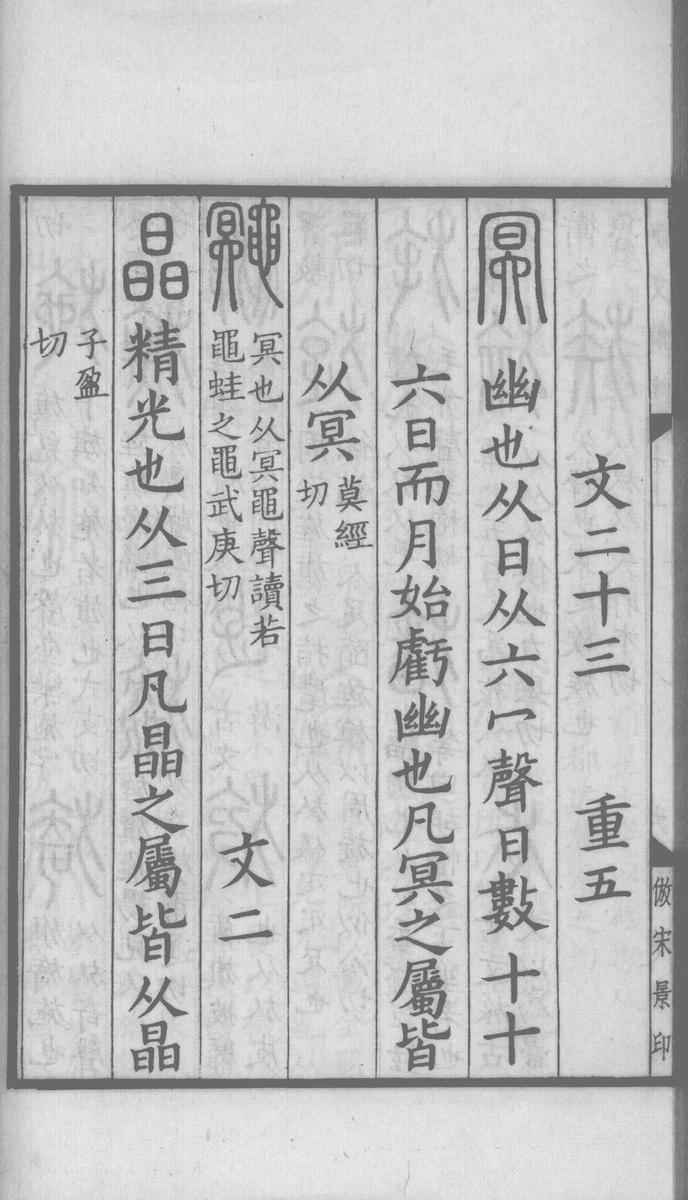 文二十三　重五
冥　幽也从日从六冖聲日數十十
六日而月始虧幽也凡冥之屬皆
从冥莫經切
鼆　冥也从冥黽聲讀若黽蛙之黽武庚切　文二
晶　精光也从三日凡晶之屬皆从晶
子盈切
倣宋景印